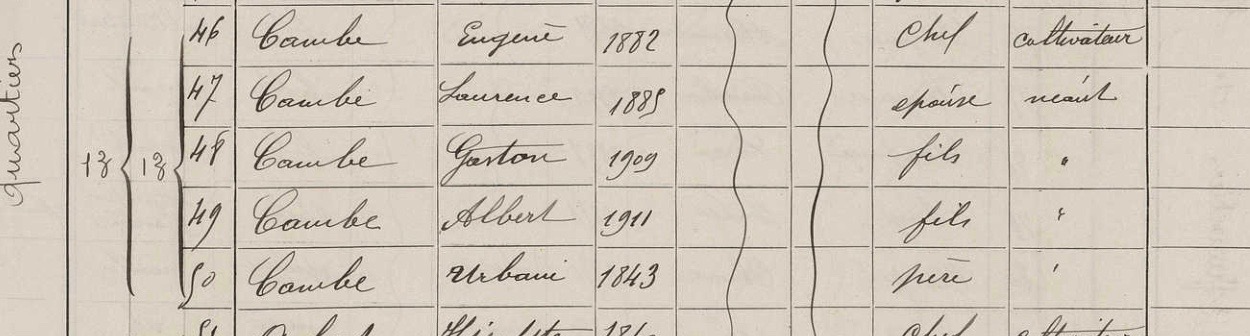 quartiers
46 Cambe Eugène 1882 Chef cultivateur
47 Cambe Laurence 1885 épouse néant
13 13 48 Cambe Gaston 1909 fils "
49 Cambe Albert 1911 fils "
50 Cambe Urbain 1843 père "
51 Chef